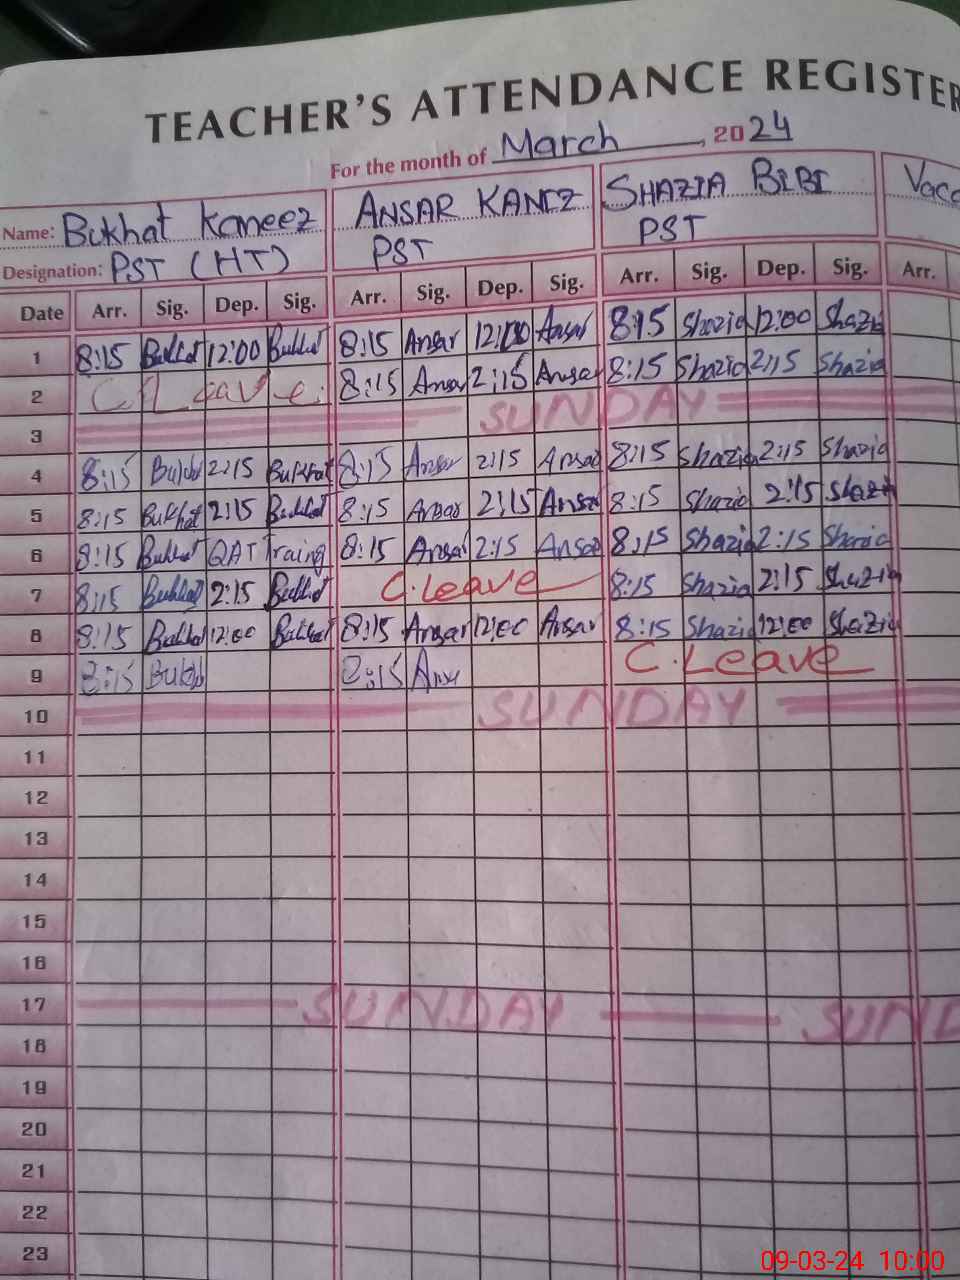 TEACHER'S ATTENDANCE REGISTER
For the month of March, 2024
Name: Bukhat Kaneez ANSAR KANIZ SHAZIA BIBI
Designation: PST (HT) PST PST
Date Arr. Sig. Dep. Sig. Arr. Sig. Dep. Sig. Arr. Sig. Dep. Sig. Arr.
1 8:15 Bukhat 12:00 Bukhat 8:15 Ansar 12:00 Ansar 8:15 Shazia 12:00 Shazia
2 C. Leave 8:15 Ansar 2:15 Ansar 8:15 Shazia 2:15 Shazia
3 SUNDAY
4 8:15 Bukhat 2:15 Bukhat 8:15 Ansar 2:15 Ansar 8:15 Shazia 2:15 Shazia
5 8:15 Bukhat 2:15 Bukhat 8:15 Ansar 2:15 Ansar 8:15 Shazia 2:15 Shazia
6 8:15 Bukhat QAT Traing 8:15 Ansar 2:15 Ansar 8:15 Shazia 2:15 Shazia
7 8:15 Bukhat 2:15 Bukhat C. Leave 8:15 Shazia 2:15 Shazia
8 8:15 Bukhat 12:00 Bukhat 8:15 Ansar 12:00 Ansar 8:15 Shazia 12:00 Shazia
9 8:15 Bukh 8:15 Ansr C. Leave
10 SUNDAY
11
12
13
14
15
16
17 SUNDAY SUND
18
19
20
21
22
23
09-03-24 10:00